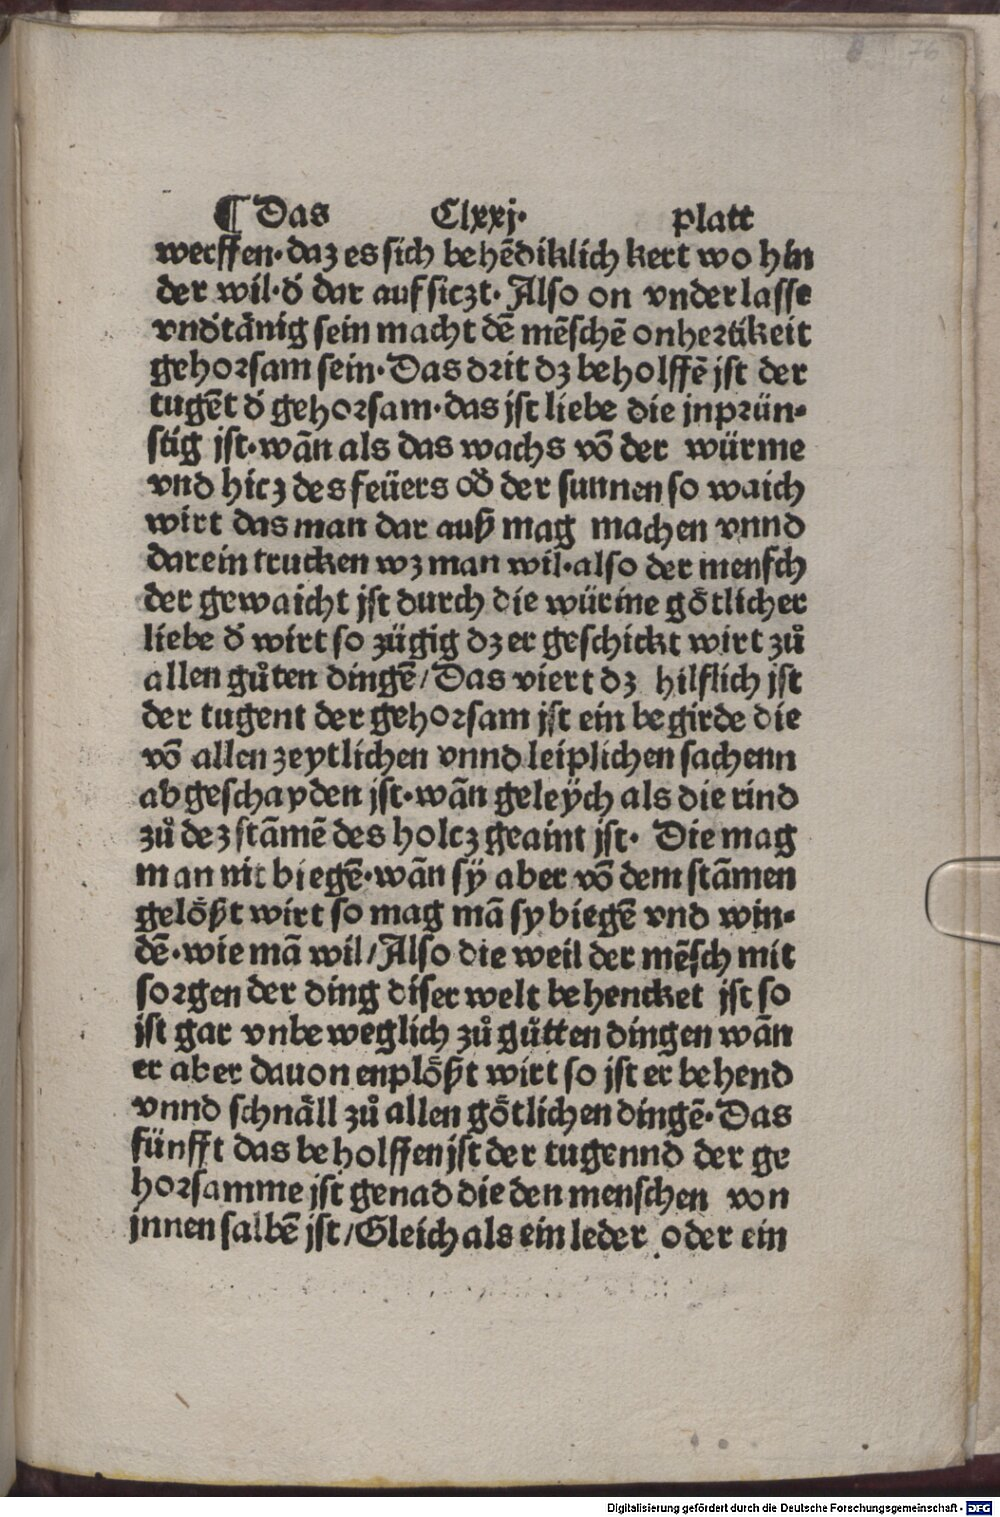 76
¶ Das Clxxj· platt
werffen·daz es sich behẽdiklich kert wo hin
der wil·d́ dar auf siczt· Also on vnderlasse
vnd́tänig sein macht dẽ mẽschẽ onhertikeit
gehorsam sein·Das drit dz beholffẽ jst der
tugẽt d́ gehorsam·das jst liebe die jnprün-
stig jst·wãn als das wachs võ der würme
vnd hicz des feüers od́ der sunnen so waich
wirt das man dar auß mag machen vnnd
darein trucken wz man wil·also der mensch
der gewaicht jst durch die würme götlicher
liebe d́ wirt so zügig dz er geschickt wirt zů
allen gůten dingẽ/Das viert dz hilflich jst
der tugent der gehorsam jst ein begirde die
võ allen zeytlichen vnnd leiplichen sachenn
abgeschayden jst·wãn geleÿch als die rind
zů dez stãmẽ des holcz geaint jst· Die mag
man nit biegẽ·wãn sÿ aber võ dem stãmen
gelößt wirt so mag mã sy biegẽ vnd win-
dẽ·wie mã wil/Also die weil der mẽsch mit
sorgen der ding diser welt behencket jst so
jst gar vnbeweglich zů gůtten dingen wãn
er aber dauon enplößt wirt so jst er behend
vnnd schnäll zů allen götlichen dingẽ·Das
fünfft das beholffen jst der tugennd der ge
horsamme jst genad die den menschen von
jnnen salbẽ jst/Gleich als ein leder oder ein
Digitalisierung gefördert durch die Deutsche Forschungsgemeinschaft - DFG